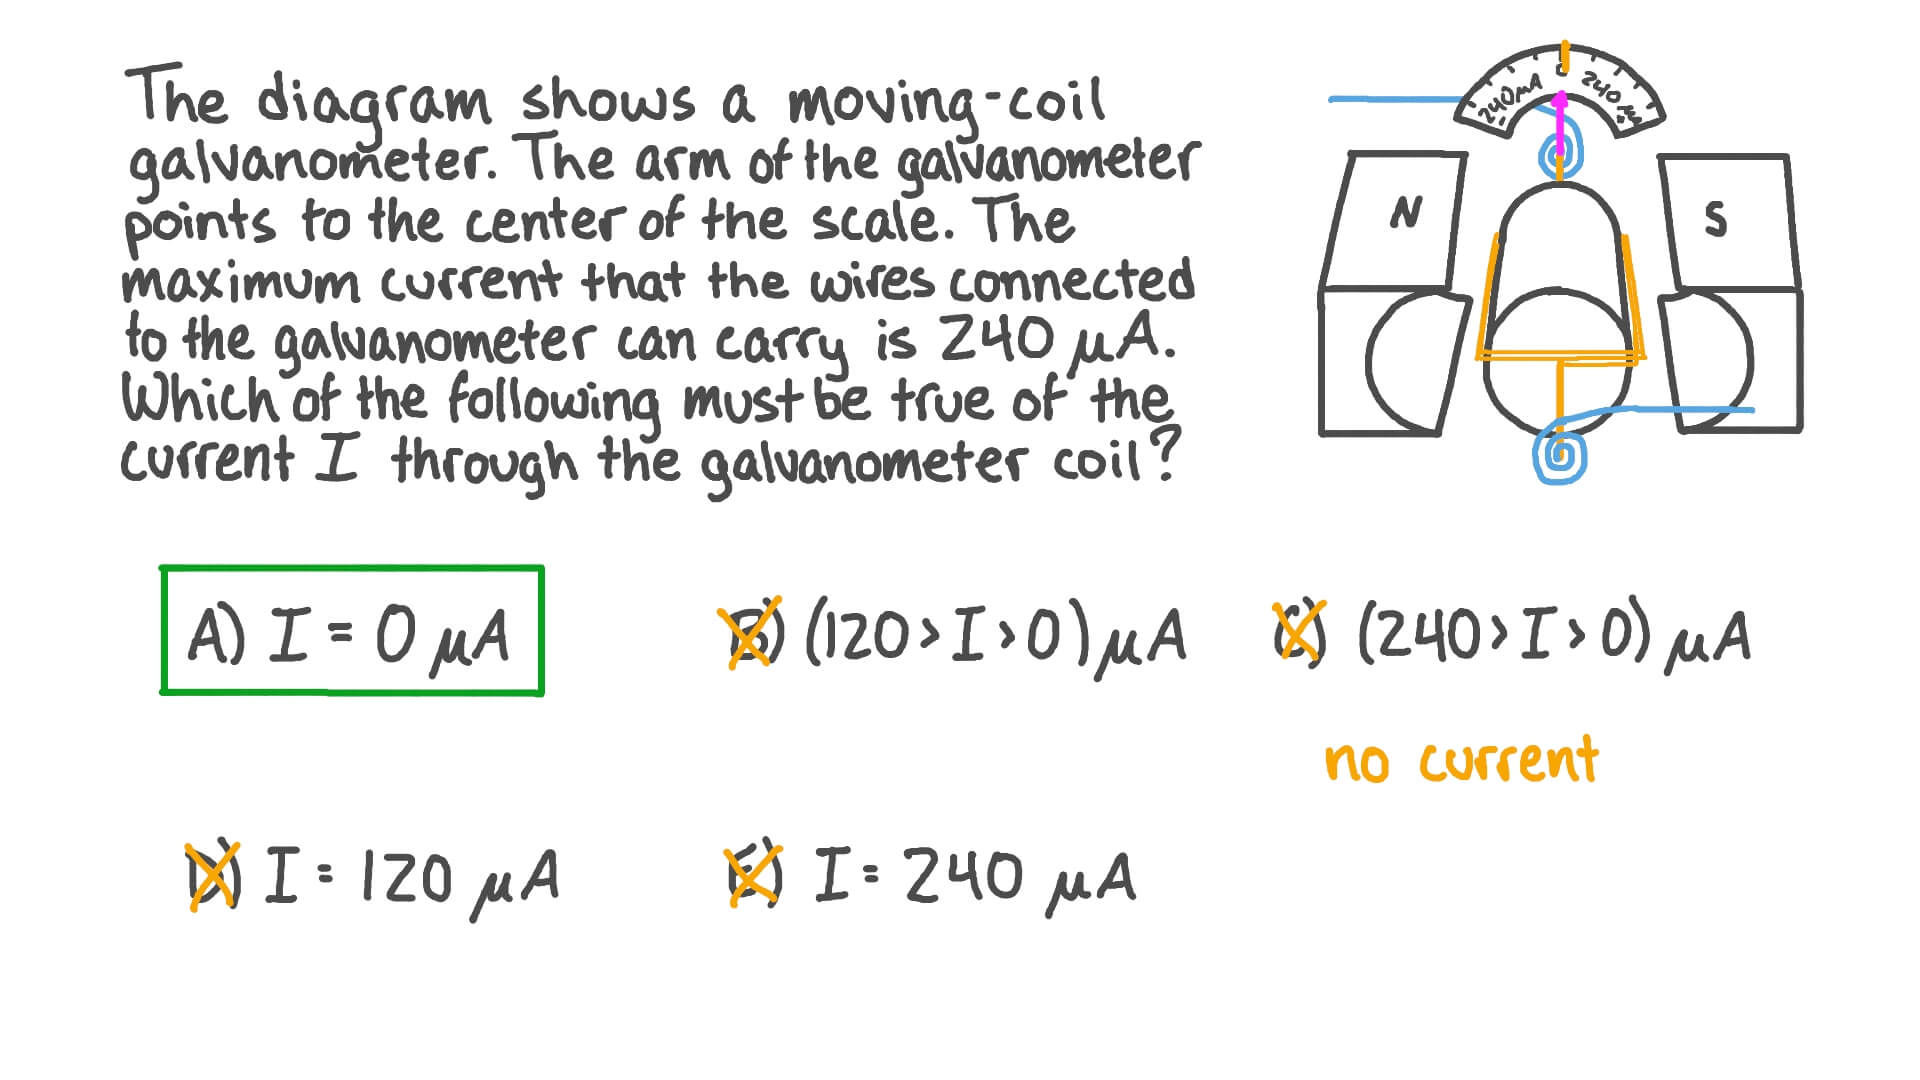 The diagram shows a moving-coil
galvanometer. The arm of the galvanometer
points to the center of the scale. The
maximum current that the wires connected
to the galvanometer can carry is 240 μA.
Which of the following must be true of the
current I through the galvanometer coil?
-240μA 0 240μA
N S
A) I = 0 μA B) (120 > I > 0) μA C) (240 > I > 0) μA
no current
D) I = 120 μA E) I = 240 μA